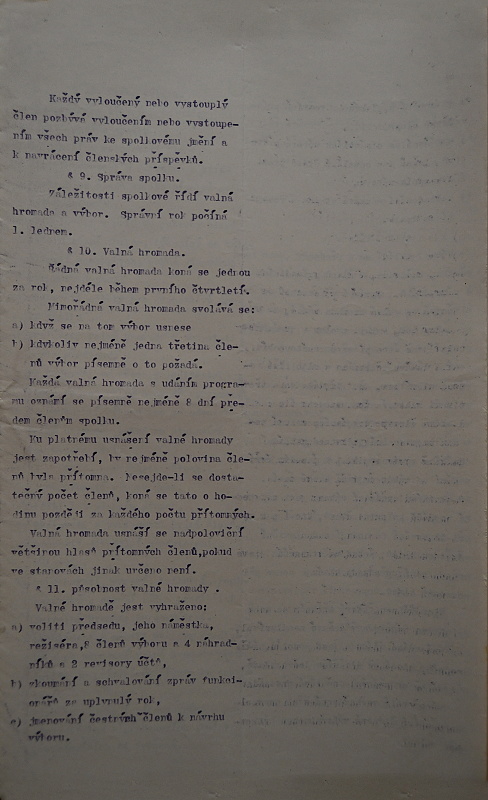 Každý vyloučený nebo vystouplý
člen pozbývá vyloučením nebo vystoupe-
ním všech práv ke spolkovému jmění a
k navrácení členských příspěvků.
§ 9. Správa spolku.
Záležitosti spolkové řídí valná
hromada a výbor. Správní rok počíná
1. lednem.
§ 10. Valná hromada.
Řádná valná hromada koná se jednou
za rok, nejdéle během prvního čtvrtletí.
Mimořádná valná hromada svolává se:
a) když se na tom výbor usnese
b) kdykoliv nejméně jedna třetina čle-
nů výbor písemně o to požádá.
Každá valná hromada s udáním progra-
mu oznámí se písemně nejméně 8 dní pře-
dem členům spolku.
Ku platnému usnášení valné hromady
jest zapotřebí, by nejméně polovina čle-
nů byla přítomna. Nesejde-li se dosta-
tečný počet členů, koná se tato o ho-
dinu později za každého počtu přítomných.
Valná hromada usnáší se nadpoloviční
většinou hlasů přítomných členů,pokud
ve stanovách jinak určeno není.
§ 11. působnost valné hromady .
Valné hromadě jest vyhraženo:
a) voliti předsedu, jeho náměstka,
režiséra,8 členů výboru a 4 náhrad-
níků a 2 revisory účtů,
b) zkoumání a schvalování zpráv funkci-
onářů za uplynulý rok,
c) jmenování čestných členů k návrhu
výboru.